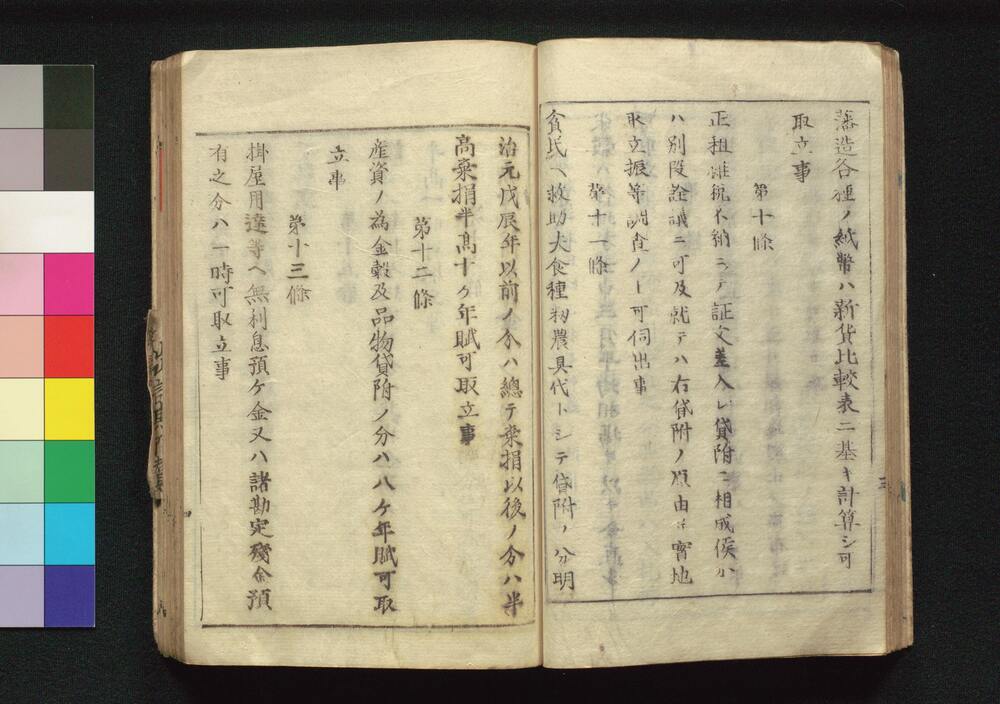 藩造各種ノ紙幣ハ新貨比較表ニ基キ計算シ可
取立事
第十條
正租雑税不納ニテ証文差入レ貸附ニ相成候分
ハ別段詮議ニ可及就テハ右貸附ノ原由等實地
取立振等調査ノ上可伺出事
第十一條
貧民ヘ救助夫食種籾農具代トシテ貸附ノ分明
治元戊辰年以前ノ分ハ總テ棄捐以後ノ分ハ半
高棄捐半高十ケ年賦可取立事
第十二條
産資ノ為金穀及品物貸附ノ分ハ八ケ年賦可取
立事
第十三條
掛屋用達等ヘ無利息預ケ金又ハ諸勘定殘金預
有之分ハ一時可取立事